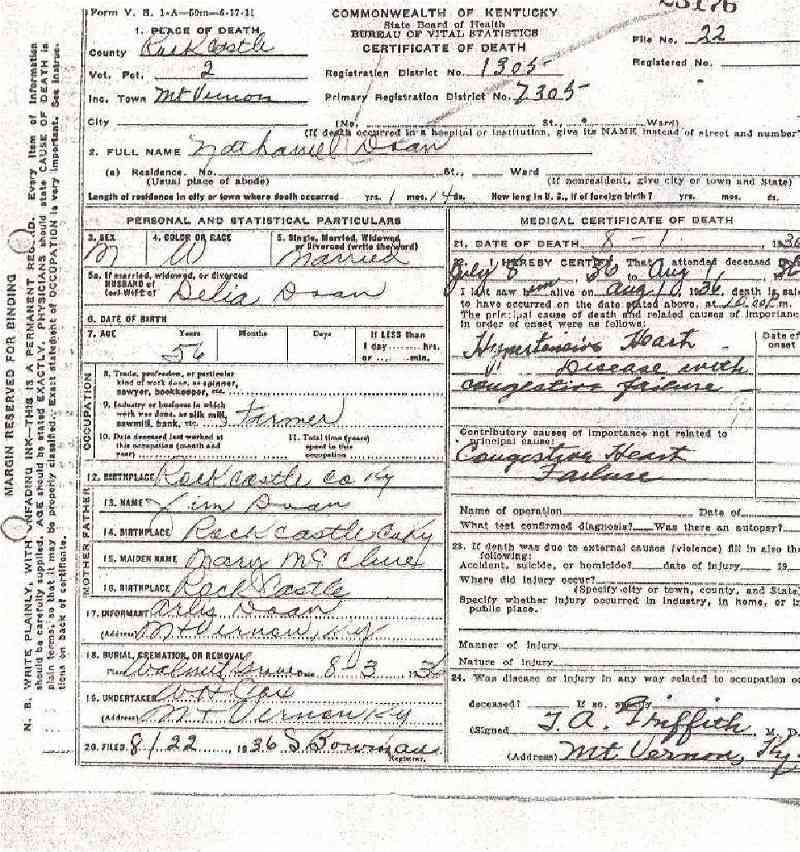 Form V. S. 1-A—50m—6-17-11
COMMONWEALTH OF KENTUCKY
State Board of Health
BUREAU OF VITAL STATISTICS
CERTIFICATE OF DEATH
File No. 22
Registered No.
1. PLACE OF DEATH
County Rockcastle
Vot. Pct. 2
Registration District No. 1305
Inc. Town Mt Vernon
Primary Registration District No. 7305
City (No. St., Ward)
(If death occurred in a hospital or institution, give its NAME instead of street and number
2. FULL NAME Nathaniel Doan
(a) Residence. No. St., Ward
(Usual place of abode) (If nonresident, give city or town and State)
Length of residence in city or town where death occurred yrs. 1 mos. 14 ds. How long in U. S., if of foreign birth? yrs. mos. ds.
PERSONAL AND STATISTICAL PARTICULARS
3. SEX M
4. COLOR OR RACE W
5. Single, Married, Widowed, or Divorced (write the word) Married
5a. If married, widowed, or divorced
HUSBAND of
(or) WIFE of Delia Doan
6. DATE OF BIRTH
7. AGE Years Months Days If LESS than
1 day hrs.
or min.
56
OCCUPATION
8. Trade, profession, or particular
kind of work done, as spinner,
sawyer, bookkeeper, etc.
9. Industry or business in which
work was done, as silk mill,
sawmill, bank, etc. Farmer
10. Date deceased last worked at
this occupation (month and
year)
11. Total time (years)
spent in this
occupation
12. BIRTHPLACE Rockcastle co Ky
FATHER
13. NAME Jim Doan
14. BIRTHPLACE Rockcastle Co Ky
MOTHER
15. MAIDEN NAME Mary McClure
16. BIRTHPLACE Rock Castle
17. INFORMANT Arlis Doan
(Address) Mt Vernon, Ky
18. BURIAL, CREMATION, OR REMOVAL
Place Walnut Grove Date 8-3, 1936
19. UNDERTAKER W H Cox
(Address) Mt Vernon Ky
20. FILED 8/22, 1936 S Bowman
Registrar.
MEDICAL CERTIFICATE OF DEATH
21. DATE OF DEATH 8-1 1936
22. I HEREBY CERTIFY, That I attended deceased
July 8, 36 to Aug 1, 36
I last saw him alive on Aug 1, 1936, death is said
to have occurred on the date stated above, at m.
The principal cause of death and related causes of importance
in order of onset were as follows:
Date of
onset
Hypertensive Heart
Disease with
congestive failure
Contributory causes of importance not related to
principal cause:
Congestive Heart
Failure
Name of operation Date of
What test confirmed diagnosis? Was there an autopsy?
23. If death was due to external causes (violence) fill in also the
following:
Accident, suicide, or homicide? date of injury 19
Where did injury occur?
(Specify city or town, county, and State)
Specify whether injury occurred in industry, in home, or in
public place.
Manner of injury
Nature of injury
24. Was disease or injury in any way related to occupation of
deceased? If so, specify
(Signed) T. A. Griffith M. D.
(Address) Mt. Vernon, Ky.
MARGIN RESERVED FOR BINDING
N. B. WRITE PLAINLY, WITH UNFADING INK—THIS IS A PERMANENT RECORD. Every item of information
should be carefully supplied. AGE should be stated EXACTLY. PHYSICIANS should state CAUSE OF DEATH in
plain terms, so that it may be properly classified. Exact statement of OCCUPATION is very important. See instruc-
tions on back of certificate.